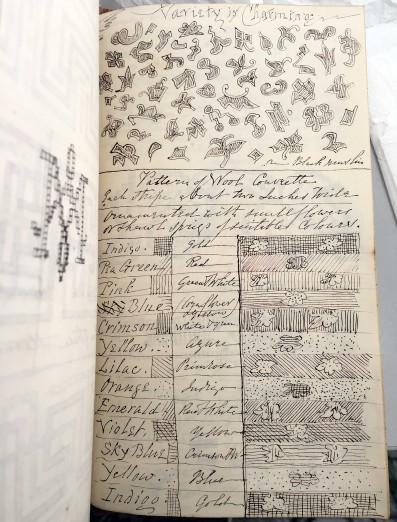 Variety is Charming
Black muslin
Pattern of Wool Couvrette
Each Stripe about two Inches Wide
Ornamented with small flowers
or Shawl sprigs of suitible Colours.
Indigo. Gold
Pea Green Red
Pink Green & White
Blue
Crimson white & green
Yellow. Azure
Lilac. Primrose
Orange. Indigo
Emerald Red & White
Violet. Yellow
Sky Blue Crimson & W
Yellow. Blue
Indigo Gold